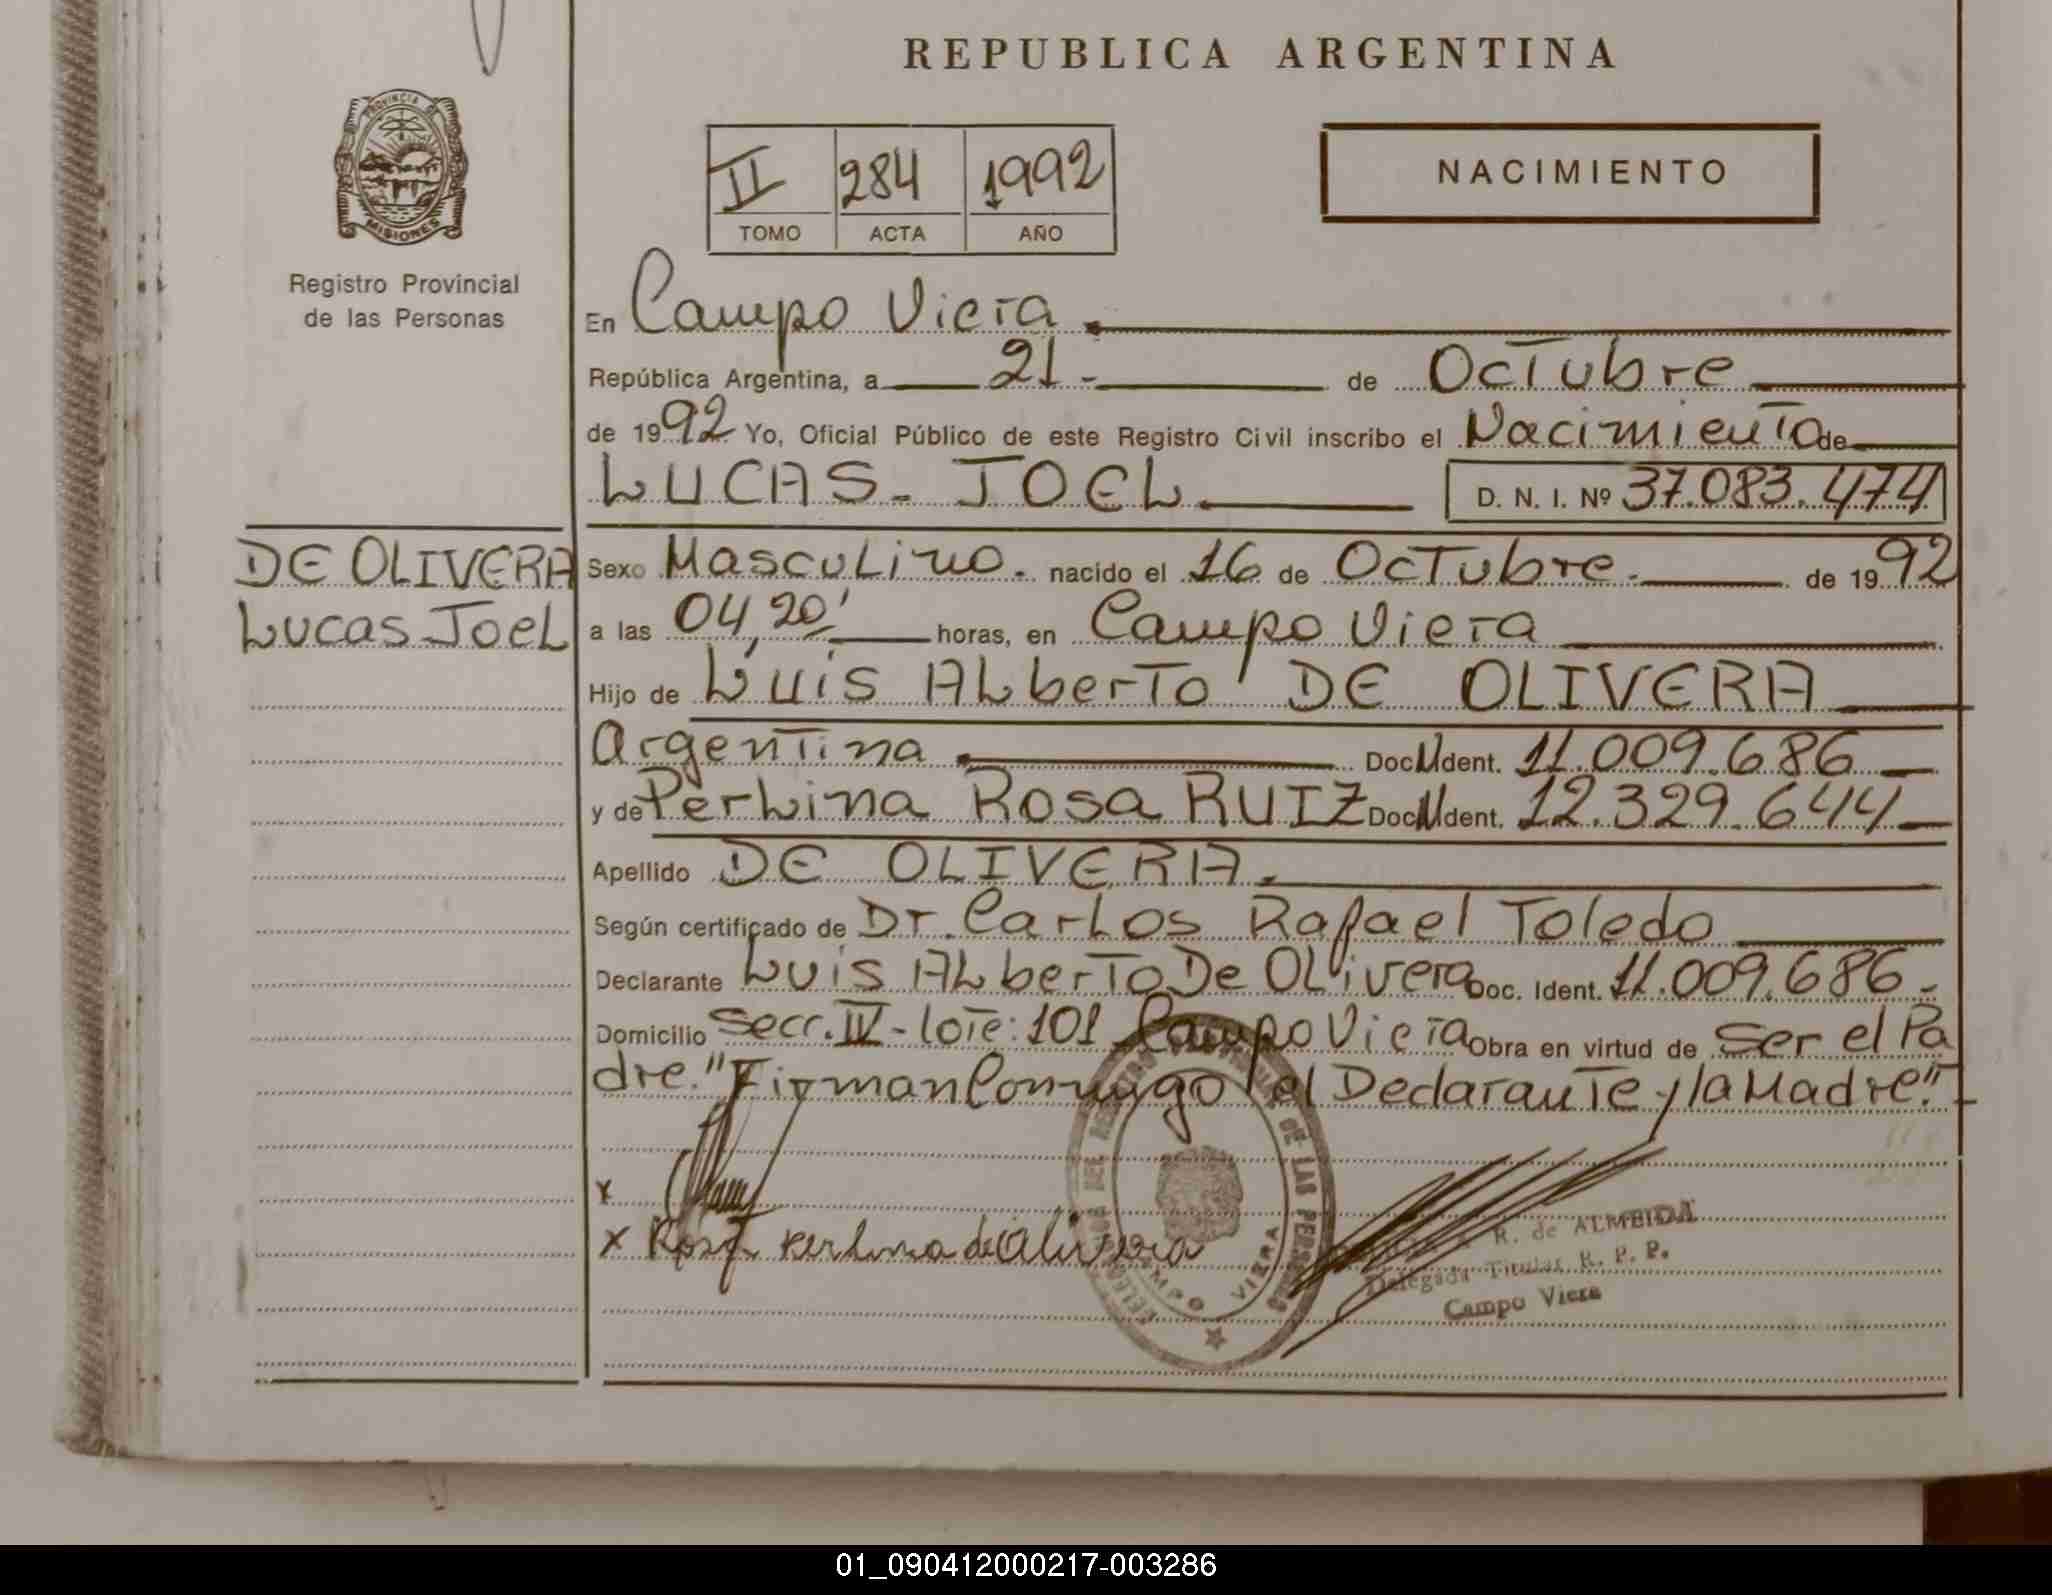 REPUBLICA ARGENTINA
PROVINCIA DE
MISIONES
Registro Provincial
de las Personas
II 284 1992
TOMO ACTA AÑO
NACIMIENTO
En Campo Viera
República Argentina, a 21 - de Octubre
de 1992 Yo, Oficial Público de este Registro Civil inscribo el Nacimiento de
LUCAS - JOEL D. N. I. Nº 37.083.474
DE OLIVERA
Lucas Joel
Sexo Masculino. nacido el 16 de Octubre. de 1992
a las 04,20' horas, en Campo Viera
Hijo de Luis Alberto DE OLIVERA
Argentina Doc. Ident. 11.009.686
y de Perlina Rosa RUIZ Doc. Ident. 12.329.644
Apellido DE OLIVERA.
Según certificado de Dr. Carlos Rafael Toledo
Declarante Luis Alberto De Olivera Doc. Ident. 11.009.686.
Domicilio Secc. IV - lote: 101 Campo Viera Obra en virtud de Ser el Pa
dre. "Firman Conmigo el Declarante y la Madre."
x
x Rosa Perlina de Olivera
DEL REGISTRO DE LAS PERSONAS
CAMPO VIERA
R. de ALMEIDA
Delegada Titular R. P. P.
Campo Viera
01_090412000217-003286